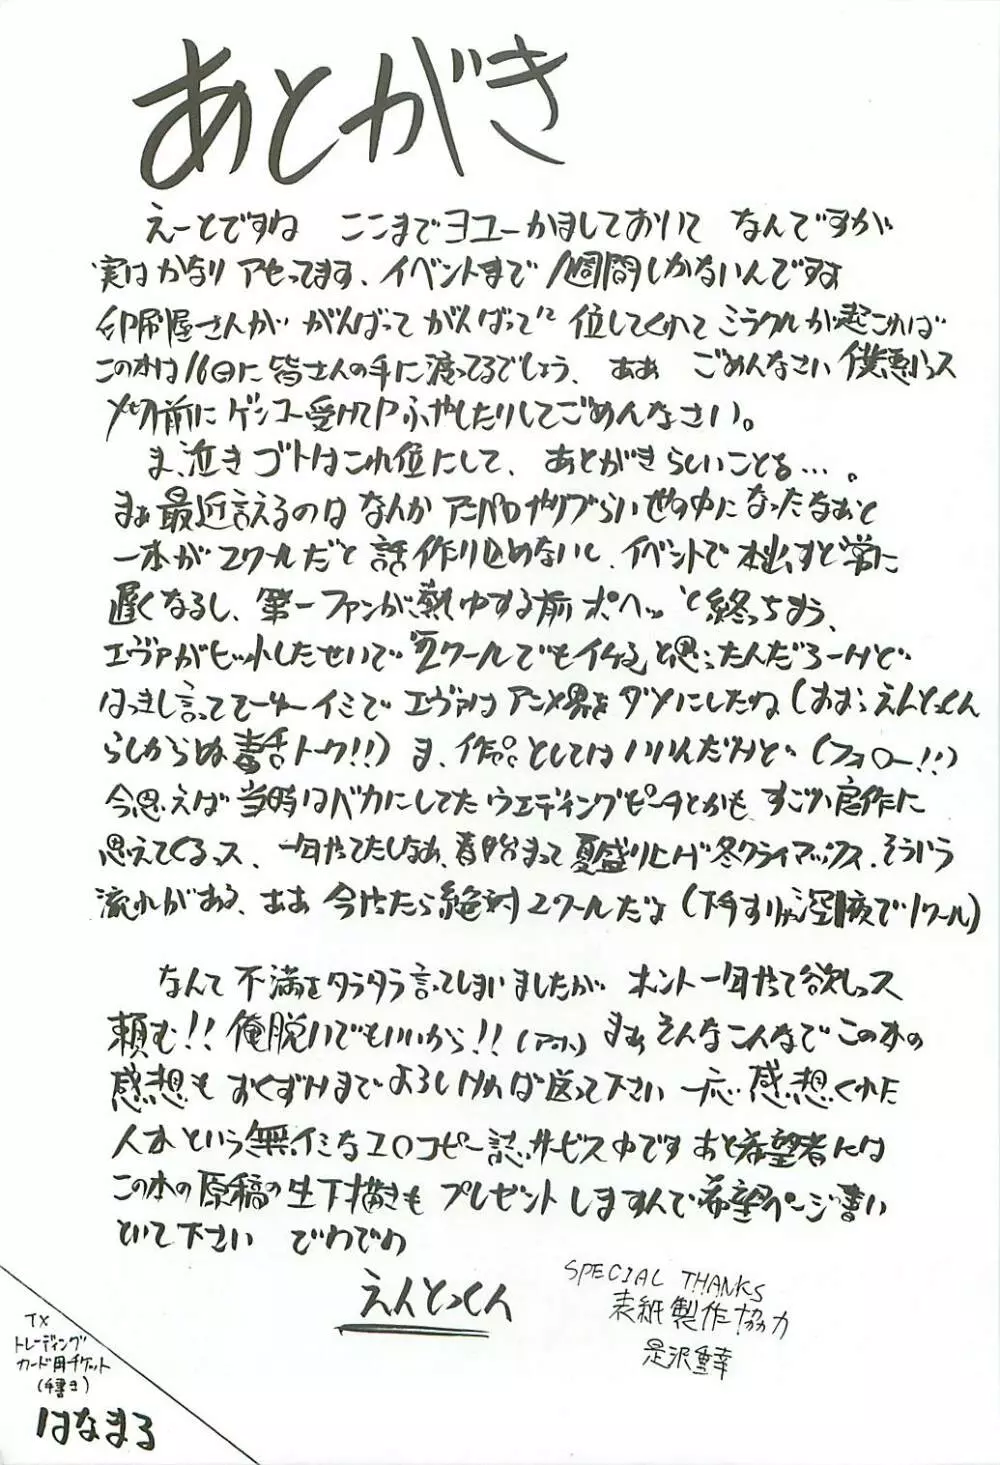 あとがき
えーとですね ここまでヨユーかましておいて なんですが
実はかなり アセってます、イベントまで 1週間しかないんですよ
印刷屋さんが がんばって がんばって 位してくれて ミラクルが起これば
この本は16日に皆さんの手に渡ってるでしょう、ああ ごめんなさい 僕悪いっス
〆切前に ゲンコー受けてP ふやしたりしてごめんなさい。
ま、泣きゴトはこれ位にして、 あとがきらしいことを…。
まぁ 最近言えるのは なんか アニパロやりづらい世の中になったなぁと
一本が2クールだと 話作り込めないし、イベントで 本出すと常に
遅くなるし、第一ファンが熱中する前 ポヘッ と終っちまう、
エヴァがヒットしたせいで "2クールでもイケる" と思ったんだろーけど
はっきし言って てーイミで エヴァはアニメ界を ダメにしたね (おおぅ えんとっくん
らしからぬ毒舌トーク!!) ま、作品としては いいんだけど (フォロー!!)
今思えば 当時はバカにしてた ウエディングピーチとかも すごい良作に
思えてくるっス、一年やってたしなぁ、春始まって 夏盛り上げ 冬クライマックス、そういう
流れがある、ああ 今やったら 絶対 2クールだよ (下手すりゃ深夜で1クール)
なんて 不満をタラタラ言ってしまいましたが ホント一年やって欲しっス
頼む!! 俺脱いでもいいから!! (アホ) まぁ そんなこんなで この本の
感想も おくずけまで よろしければ送って下さい 一応 感想くれた
人 という 無イミなエロコピー誌サービス中です あと希望者には
この本の原稿の生下描きも プレゼント しますんで 希望ページ書い
といて下さい でわでわ
えんとっくん
SPECIAL THANKS
表紙製作協力
是沢重幸
TX
トレーディング
カード用チケット
(手書き)
はなまる